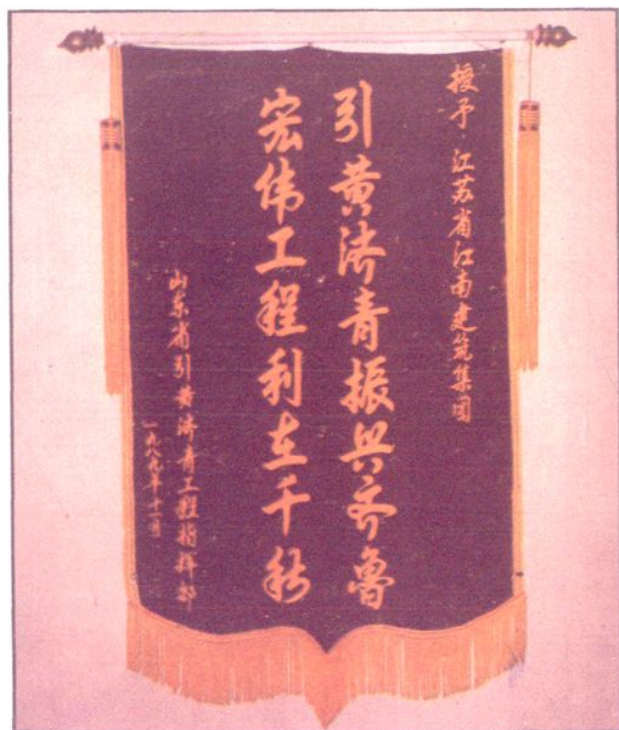 授予:江苏省江南建筑集团
引黄济青振兴齐鲁
宏伟工程利在千秋
山东省引黄济青工程指挥部
一九八九年十一月